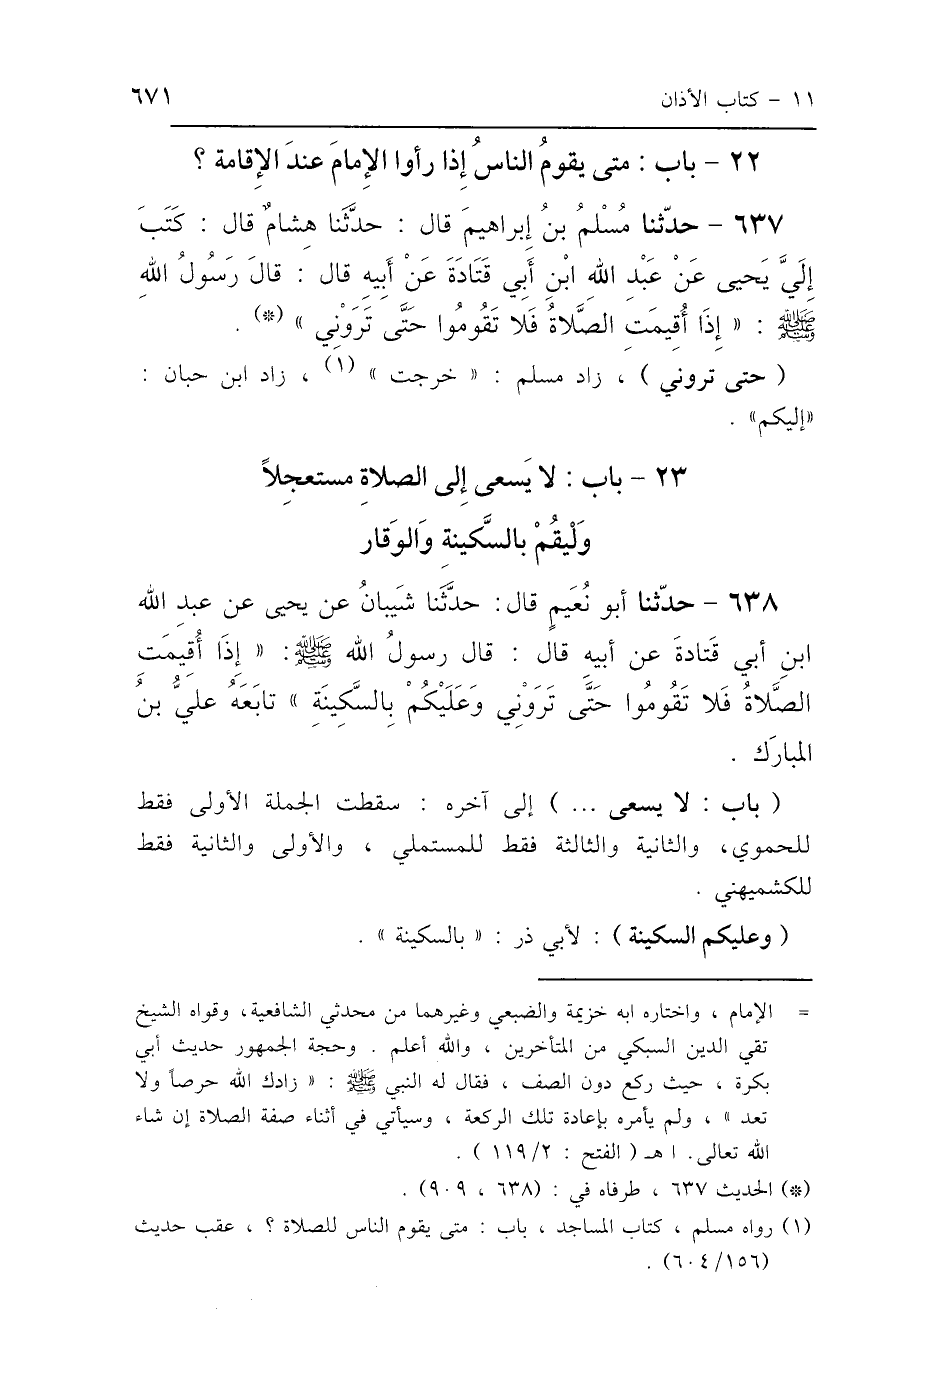 ١١ - كتاب الأذان ٦٧١
٢٢ - باب : متى يقومُ الناسُ إذا رأوا الإِمامَ عندَ الإِقامة ؟
٦٣٧ - حدّثنا مُسْلمُ بنُ إبراهيمَ قال : حدَّثَنا هِشامٌ قال : كَتَبَ
إِلَيَّ يَحيى عَنْ عَبْدِ الله ابْنِ أَبي قَتَادَةَ عَنْ أَبيهِ قال : قالَ رَسُولُ اللهِ
ﷺ : « إِذَا أُقيمَتِ الصَّلاةُ فَلا تَقُومُوا حَتَّى تَرَوْنِي » (*) .
( حتى تروني ) ، زاد مسلم : « خرجت » (١) ، زاد ابن حبان :
«إليكم» .
٢٣ - باب : لا يَسعى إِلى الصلاةِ مستعجِلاً
وَلْيقُمْ بالسَّكينةِ وَالوَقار
٦٣٨ - حدّثنا أبو نُعَيمٍ قال: حدَّثَنا شَيبانُ عن يحيى عن عبدِ الله
ابنِ أبي قَتادةَ عن أبيهِ قال : قال رسولُ الله ﷺ: « إِذَا أُقيمَتِ
الصَّلاةُ فَلا تَقُومُوا حَتَّى تَرَوْنِي وَعَلَيْكُمْ بِالسَّكِينَةِ » تابَعَهُ عليُّ بنُ
المبارَك .
( باب : لا يسعى ... ) إلى آخره : سقطت الجملة الأولى فقط
للحموي، والثانية والثالثة فقط للمستملي ، والأولى والثانية فقط
للكشميهني .
( وعليكم السكينة ) : لأبي ذر : « بالسكينة » .
= الإمام ، واختاره ابه خزيمة والضبعي وغيرهما من محدثي الشافعية، وقواه الشيخ
تقي الدين السبكي من المتأخرين ، والله أعلم . وحجة الجمهور حديث أبي
بكرة ، حيث ركع دون الصف ، فقال له النبي ﷺ : « زادك الله حرصاً ولا
تعد » ، ولم يأمره بإعادة تلك الركعة ، وسيأتي في أثناء صفة الصلاة إن شاء
الله تعالى. ا هـ ( الفتح : ١١٩/٢ ) .
(*) الحديث ٦٣٧ ، طرفاه في : (٦٣٨ ، ٩٠٩) .
(١) رواه مسلم ، كتاب المساجد ، باب : متى يقوم الناس للصلاة ؟ ، عقب حديث
(٦٠٤/١٥٦) .